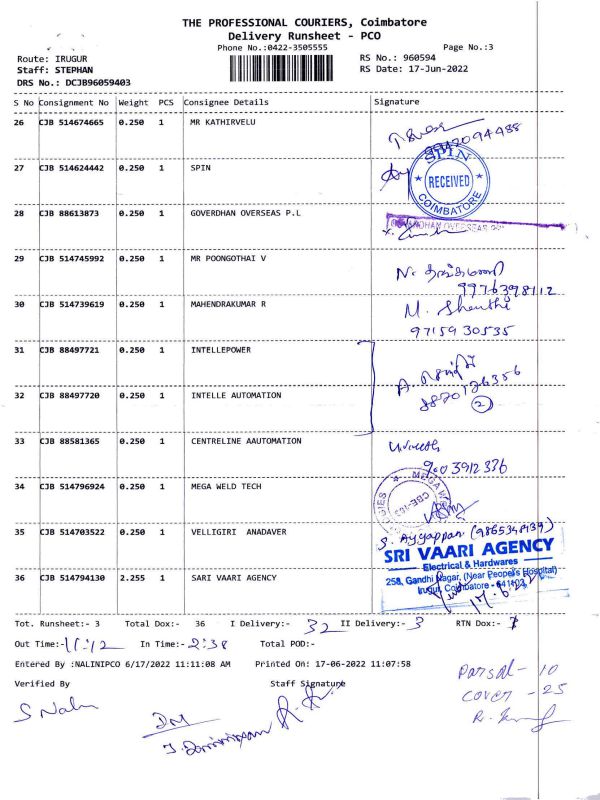 THE PROFESSIONAL COURIERS, Coimbatore
Delivery Runsheet - PCO
Phone No.:0422-3505555
Page No.:3
Route: IRUGUR
RS No.: 960594
Staff: STEPHAN
RS Date: 17-Jun-2022
DRS No.: DCJB96059403
S No Consignment No Weight PCS Consignee Details Signature
26 CJB 514674665 0.250 1 MR KATHIRVELU
27 CJB 514624442 0.250 1 SPIN
SPIN
RECEIVED
COIMBATORE
28 CJB 88613873 0.250 1 GOVERDHAN OVERSEAS P.L
29 CJB 514745992 0.250 1 MR POONGOTHAI V
9976398112
30 CJB 514739619 0.250 1 MAHENDRAKUMAR R
M. Shanthi
9715930535
31 CJB 88497721 0.250 1 INTELLEPOWER
32 CJB 88497720 0.250 1 INTELLE AUTOMATION
8870126356
2
33 CJB 88581365 0.250 1 CENTRELINE AAUTOMATION
9003912336
34 CJB 514796924 0.250 1 MEGA WELD TECH
35 CJB 514703522 0.250 1 VELLIGIRI ANADAVER
S. Ayyappan (9865348139)
36 CJB 514794130 2.255 1 SARI VAARI AGENCY
SRI VAARI AGENCY
Electrical & Hardwares
258, Gandhi Nagar, (Near Peopels Hospital)
Irugur, Coimbatore - 641103
Tot. Runsheet:- 3 Total Dox:- 36 I Delivery:- 32 II Delivery:- 3 RTN Dox:- 1
Out Time:- 11:12 In Time:- 2:38 Total POD:-
Entered By :NALINIPCO 6/17/2022 11:11:08 AM Printed On: 17-06-2022 11:07:58
Verified By Staff Signature
Parsal - 10
cover - 25
S Nalu
DM